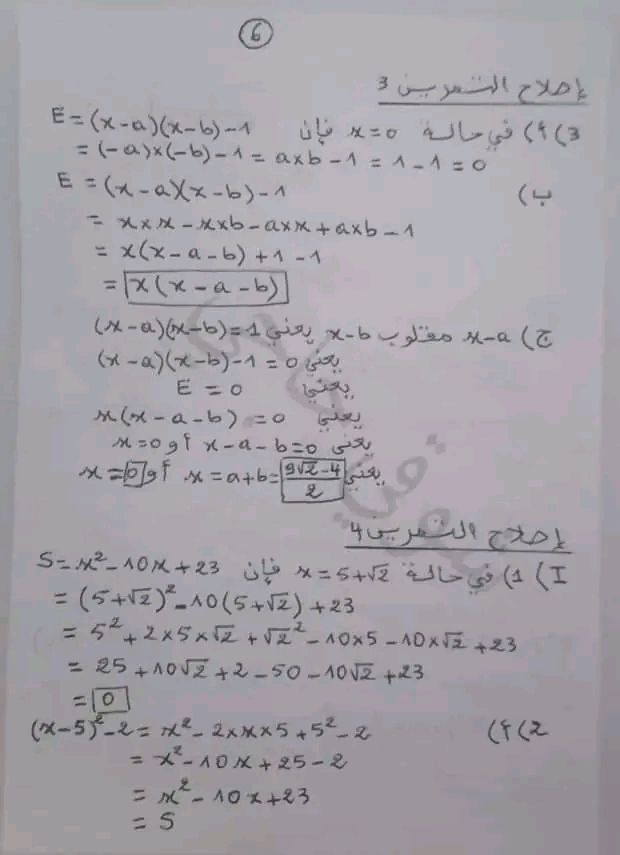 6
إصلاح التمرين 3
3) أ) في حالة x=0 فإن E=(x-a)(x-b)-1
=(-a)×(-b)-1=a×b-1=1-1=0
ب) E=(x-a)(x-b)-1
=x×x-x×b-a×x+a×b-1
=x(x-a-b)+1-1
=x(x-a-b)
ج) x-a مقلوب x-b يعني (x-a)(x-b)=1
يعني (x-a)(x-b)-1=0
يعني E=0
يعني x(x-a-b)=0
يعني x-a-b=0 أو x=0
يعني x=a+b=(9√2-4)/2 أو x=0
إصلاح التمرين 4
I) 1) في حالة x=5+√2 فإن S=x²-10x+23
=(5+√2)²-10(5+√2)+23
=5²+2×5×√2+√2²-10×5-10×√2+23
=25+10√2+2-50-10√2+23
=0
2) أ) (x-5)²-2=x²-2×x×5+5²-2
=x²-10x+25-2
=x²-10x+23
=S